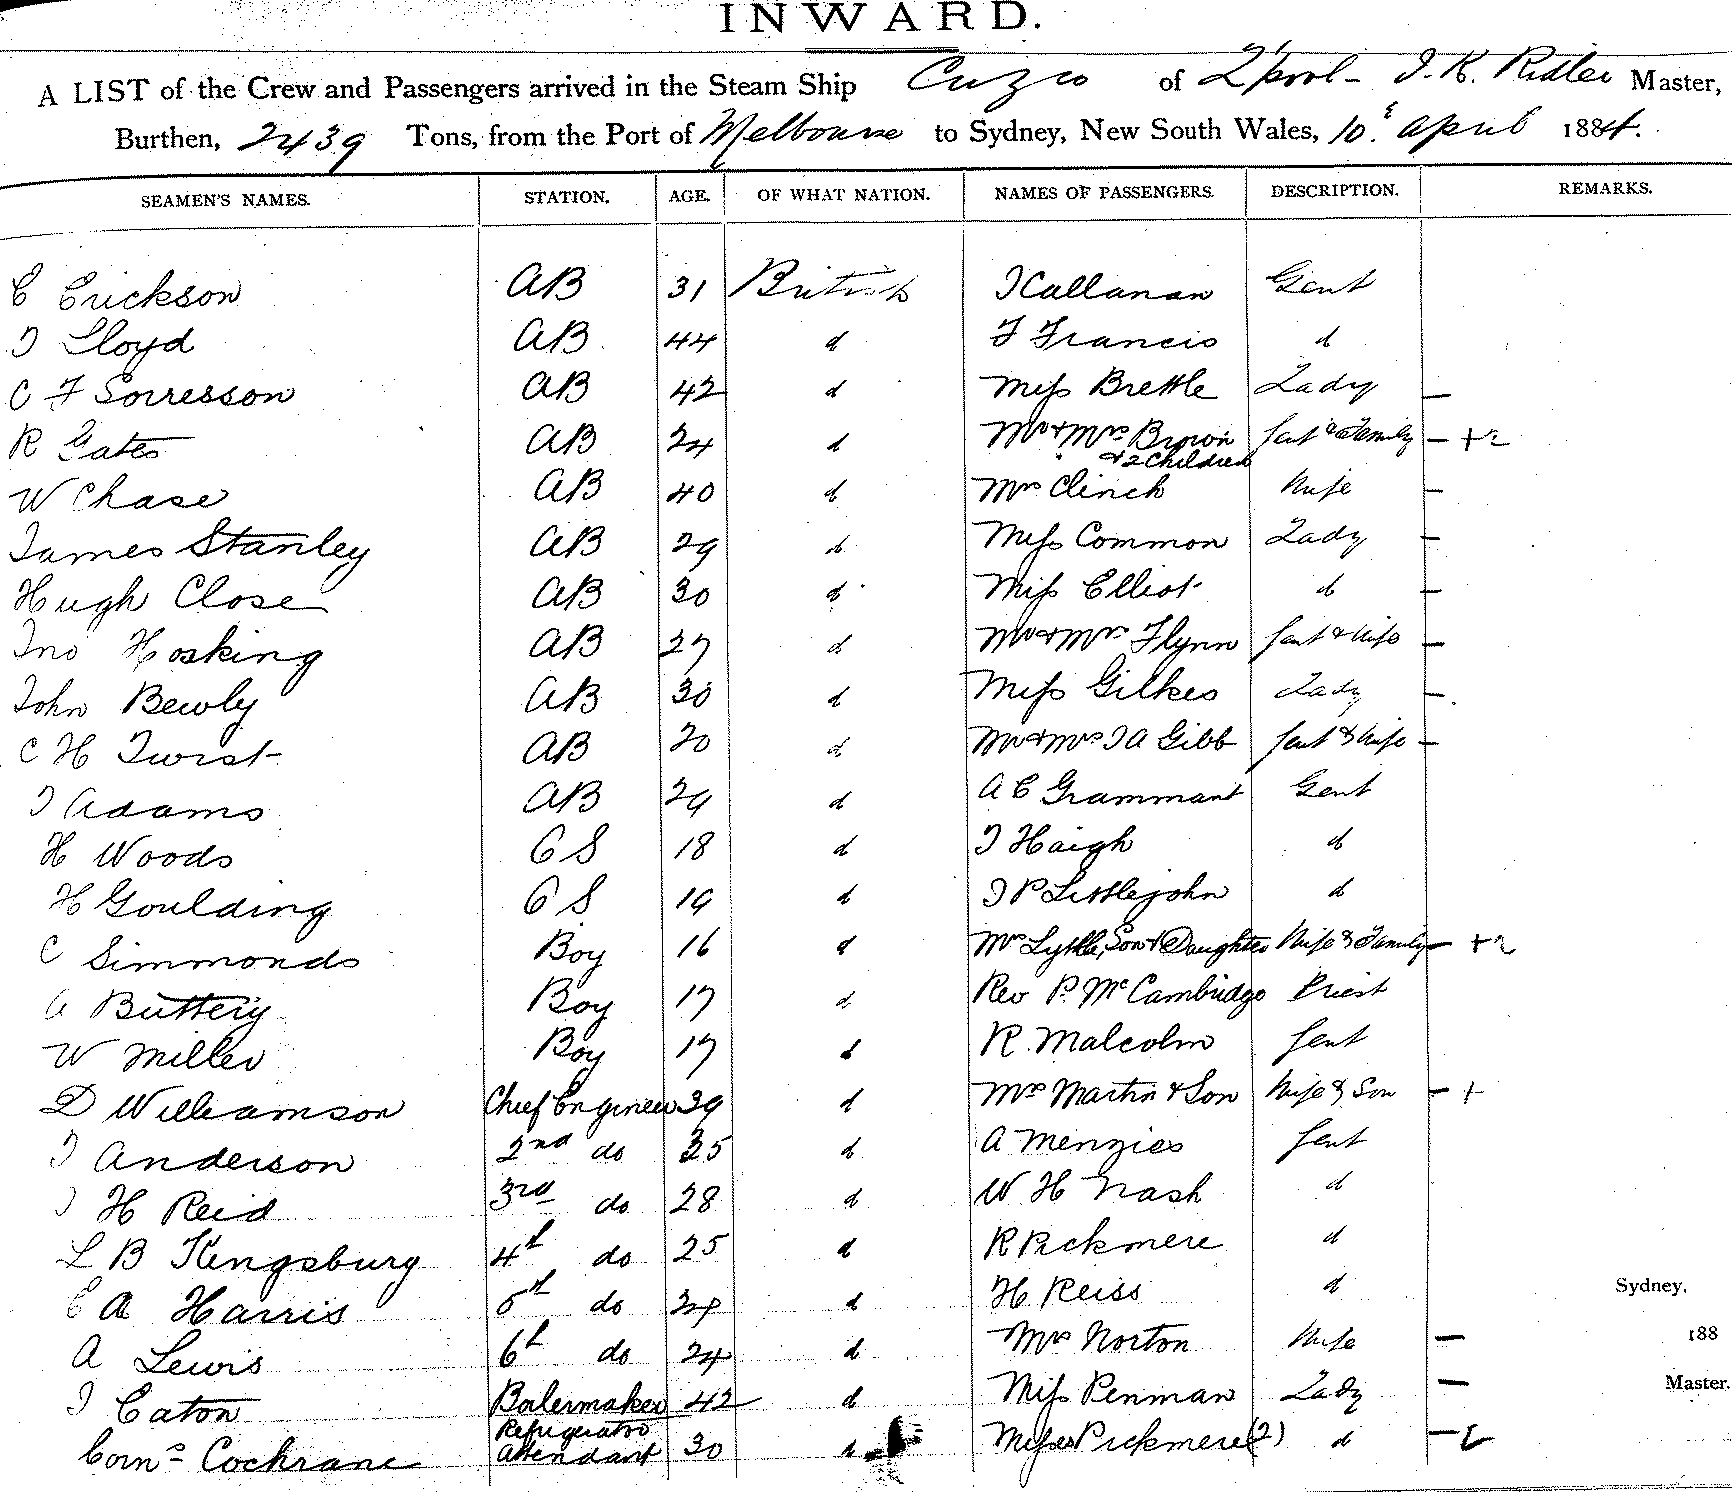 INWARD.
A LIST of the Crew and Passengers arrived in the Steam Ship Cuzco of L'pool - J. K. Ridler Master,
Burthen, 2439 Tons, from the Port of Melbourne to Sydney, New South Wales, 10th April 1884.
SEAMEN'S NAMES. STATION. AGE. OF WHAT NATION. NAMES OF PASSENGERS. DESCRIPTION. REMARKS.
C Erickson AB 31 British J Callanan Gent
J Lloyd AB 44 d F Francis d
C F Sorresson AB 42 d Miss Brettle Lady -
R Gates AB 24 d Mr & Mrs Brown Gent & Family - + 2
& 2 Children
W Chase AB 40 d Mrs Clinch Wife -
James Stanley AB 29 d Miss Common Lady -
Hugh Close AB 30 d Miss Elliot d -
Jno Hosking AB 27 d Mr & Mrs Flynn Gent & Wife -
John Bewly AB 30 d Miss Gilkes Lady -
C H Twist AB 20 d Mr & Mrs J A Gibb Gent & Wife -
J Adams AB 29 d A C Grammant Gent
H Woods OS 18 d J Haigh d
H Goulding OS 19 d J P Littlejohn d
C Simmonds Boy 16 d Mrs Lyttle, Son & Daughter Wife & Family - + 2
A Buttery Boy 17 d Rev P. McCambridge Priest
W Miller Boy 17 d R. Malcolm Gent
D Williamson Chief Engineer 39 d Mrs Martin & Son Wife & Son - +
J Anderson 2nd do 35 d A Menzies Gent
J H Reid 3rd do 28 d W H Nash d
L B Kingsburg 4th do 25 d R Pickmere d
C A Harris 5th do 24 d H Reiss d Sydney,
A Lewis 6th do 24 d Mrs Norton Wife - 188
J Caton Boilermaker 42 d Miss Penman Lady - Master.
Corns Cochrane Refrigerator Attendant 30 d Misses Pickmere (2) d -